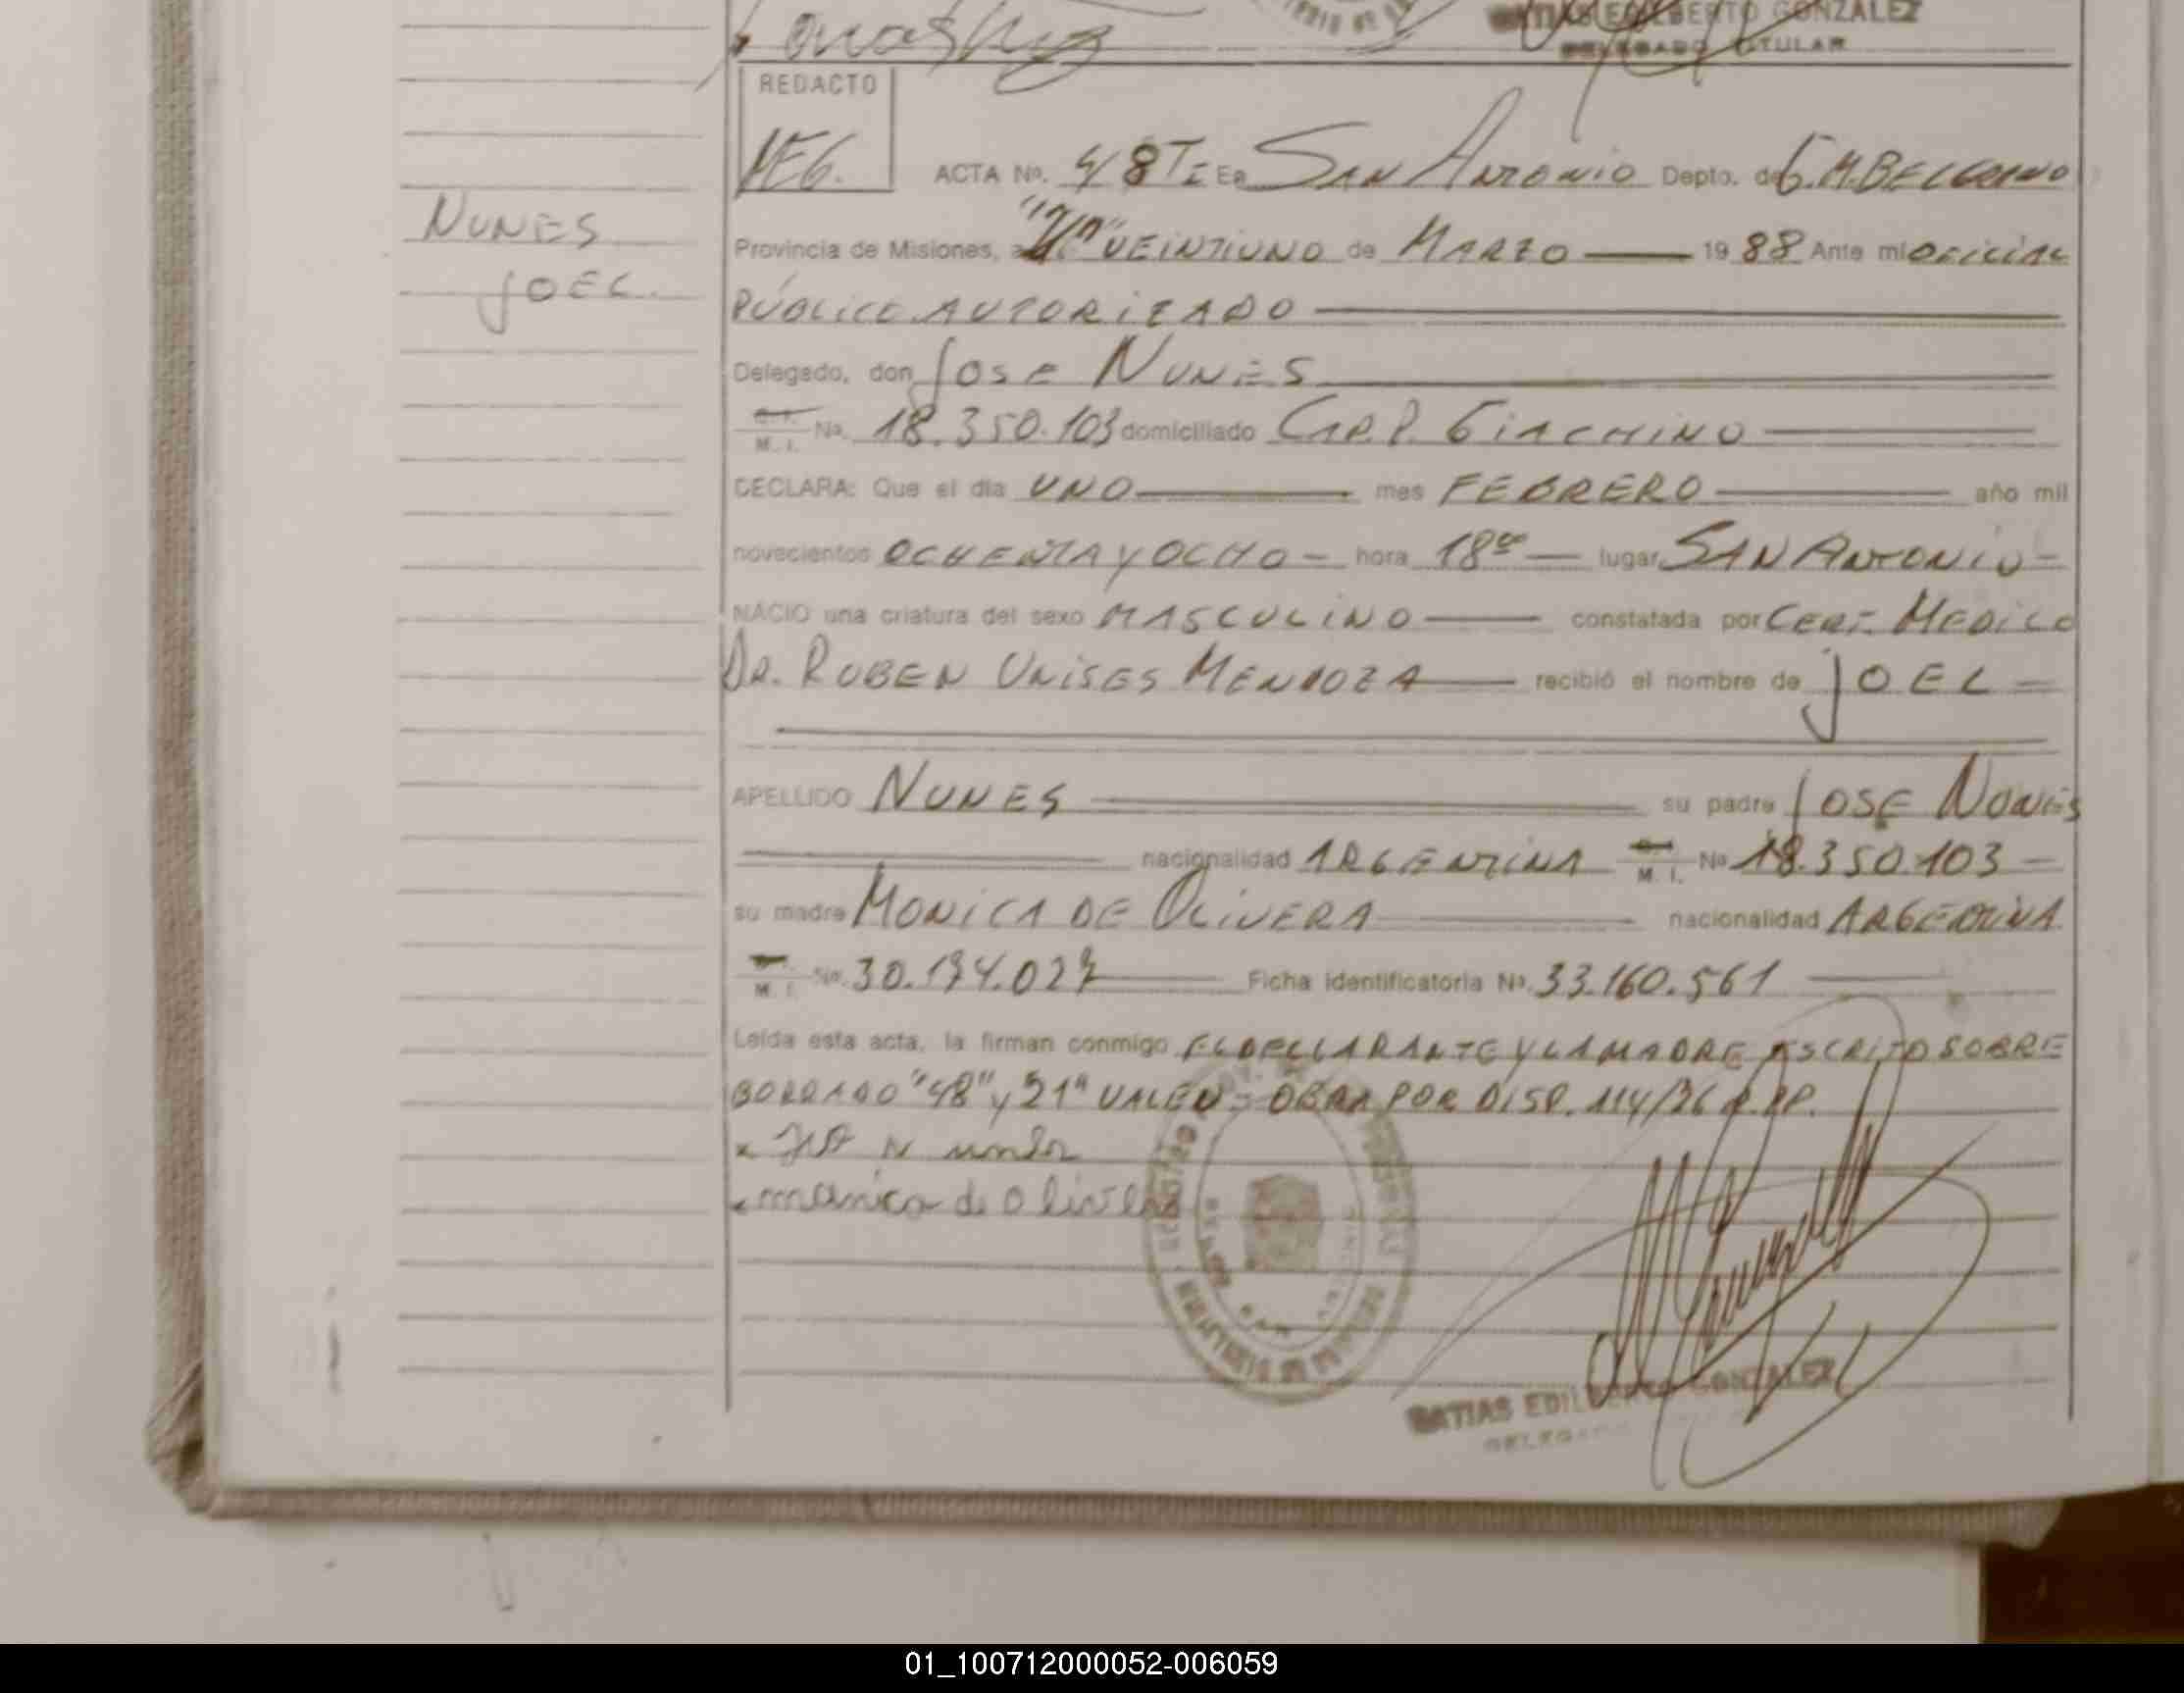 MATIAS EDILBERTO GONZALEZ
DELEGADO TITULAR
REDACTO
MEG.
ACTA No. 48 TI En SAN ANTONIO Depto. de G.M.BELGRANO
NUNES
JOEL.
Provincia de Misiones, a VEINTIUNO de MARZO 1988 Ante mi OFICIAL
PÚBLICO AUTORIZADO
Delegado, don JOSE NUNES
M. I. No. 18.350.103 domiciliado CAP.P. GIACHINO
DECLARA: Que el día UNO mes FEBRERO año mil
novecientos OCHENTA Y OCHO - hora 18°° lugar SAN ANTONIO -
NACIO una criatura del sexo MASCULINO constatada por CERT. MEDICO
DR. RUBEN UNISES MENDOZA recibió el nombre de JOEL
APELLIDO NUNES su padre JOSE NUNES
nacionalidad ARGENTINA M. I. No 18.350.103
su madre MONICA DE OLIVERA nacionalidad ARGENTINA
M. I. No. 30.174.027 Ficha identificatoria No. 33.160.561
Leída esta acta, la firman conmigo EL DECLARANTE Y LA MADRE ESCRITO SOBRE
BORRADO "48" y 21" VALEN - OBRA POR DISP. 114/86 R.PP.
monica de Olivera
MATIAS EDILBERTO GONZALEZ
01_100712000052-006059